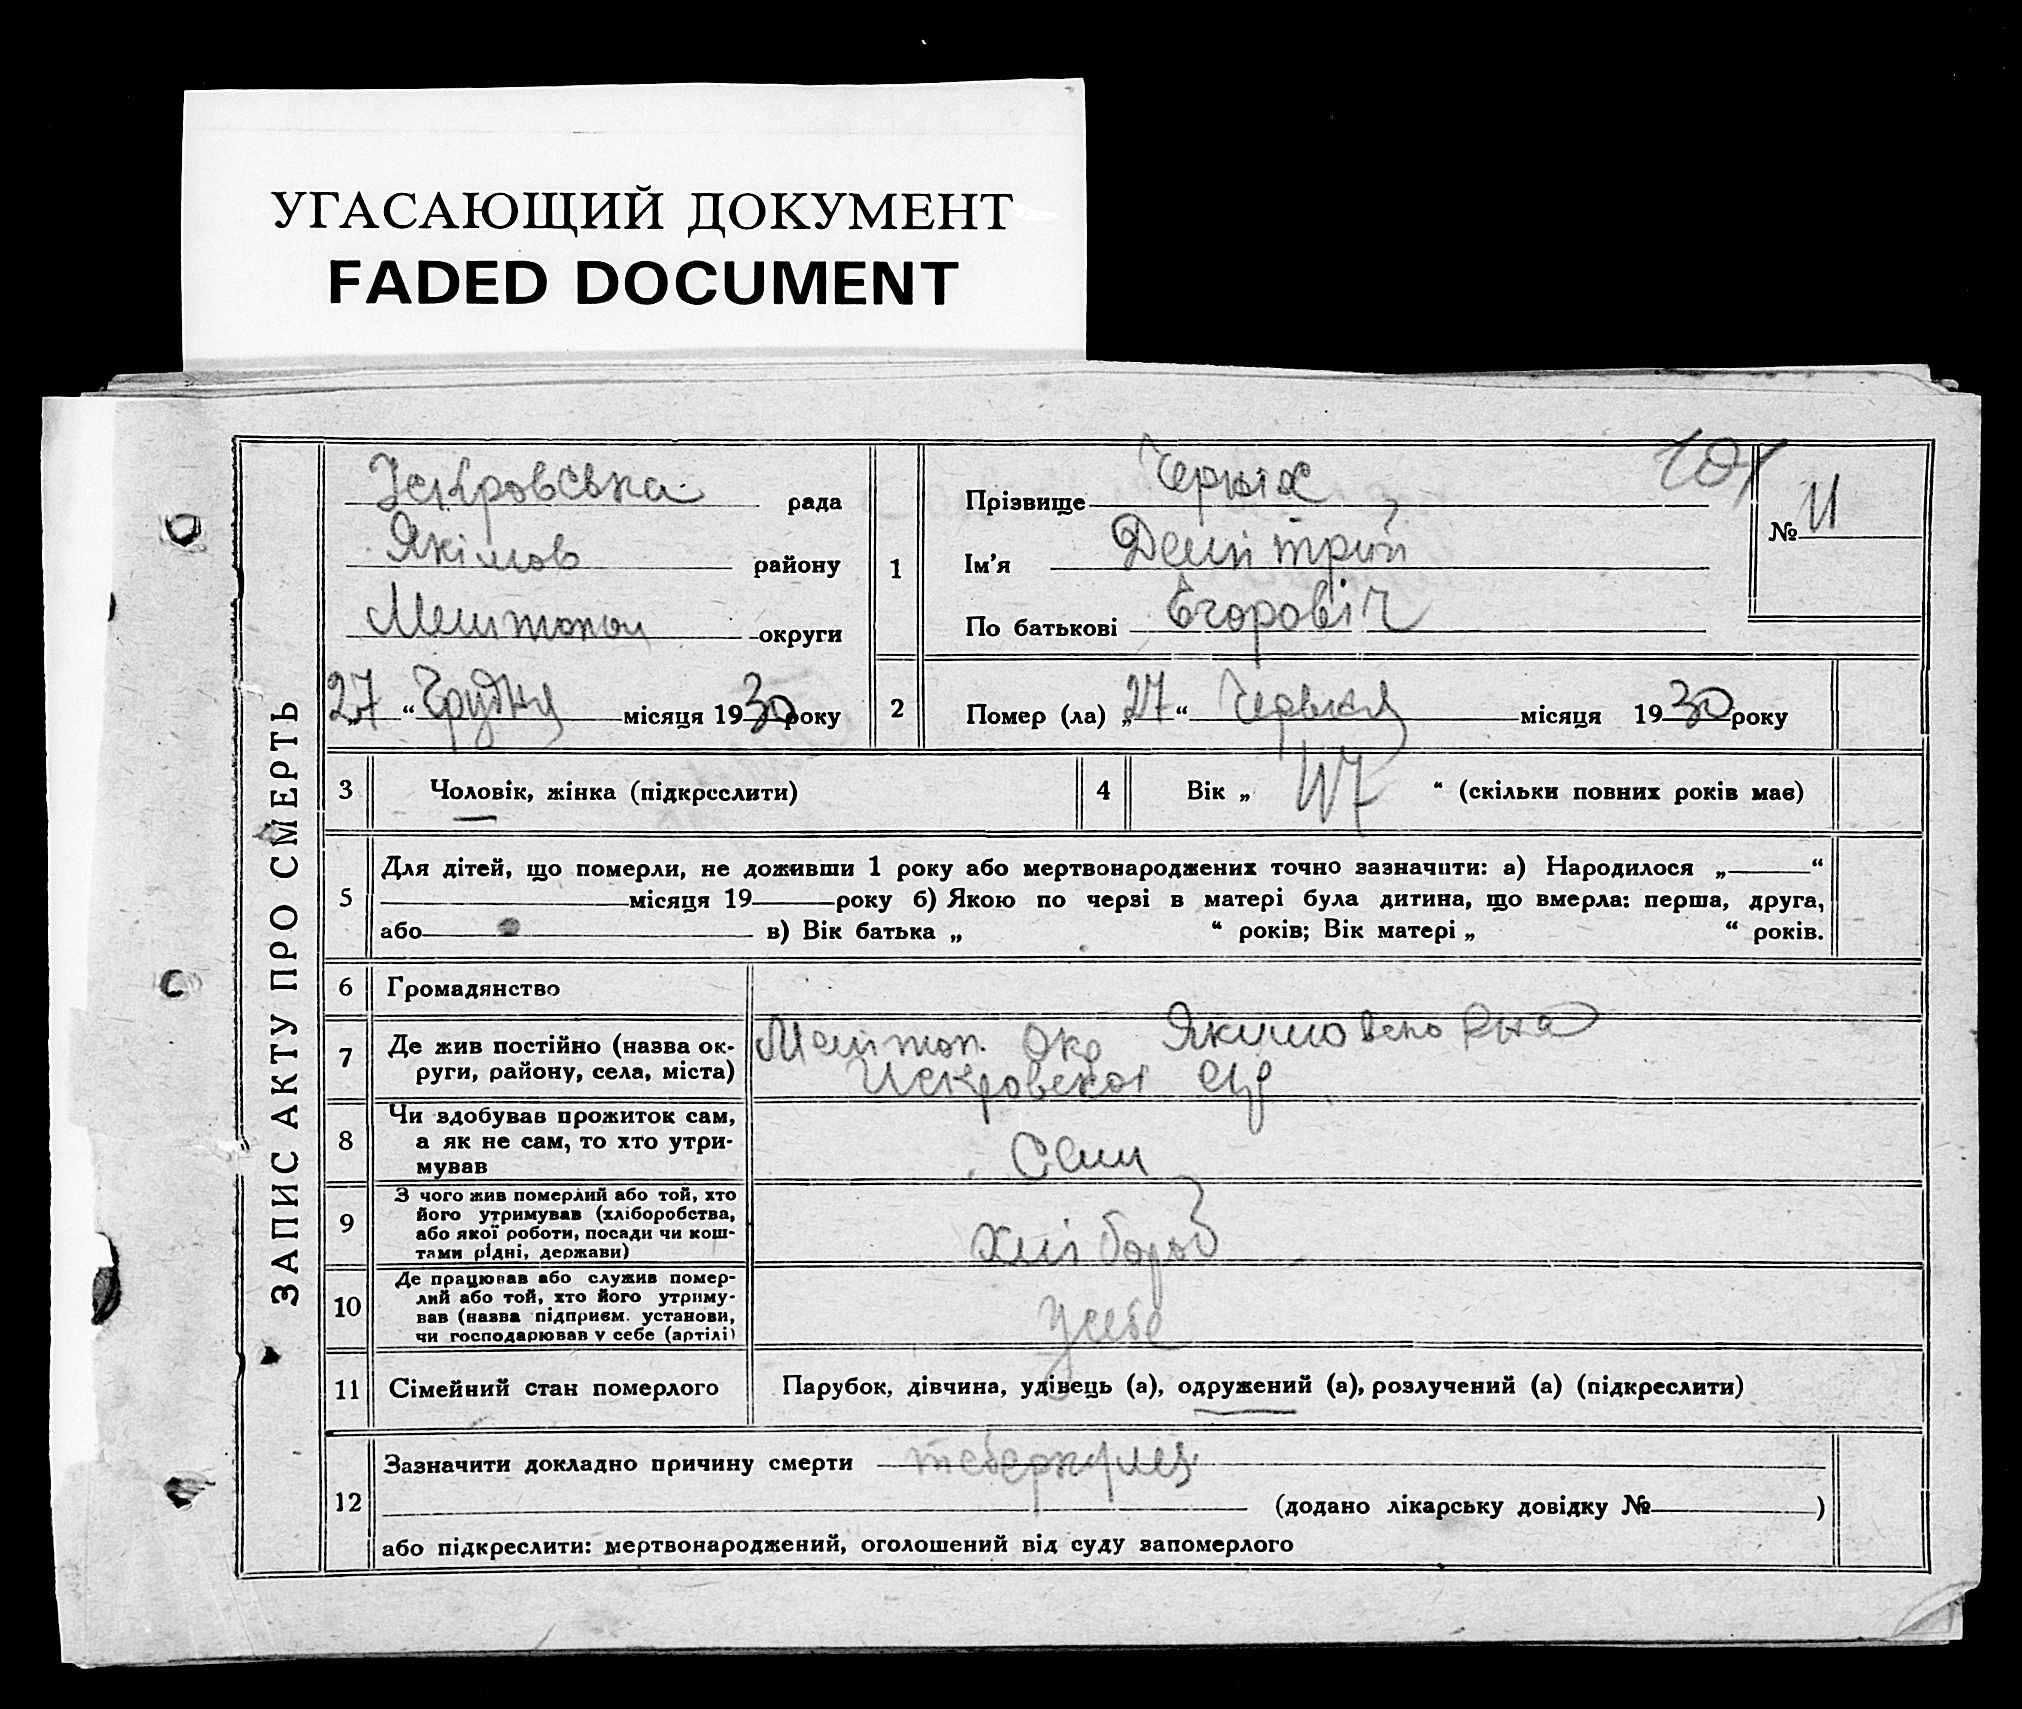 УГАСАЮЩИЙ ДОКУМЕНТ
FADED DOCUMENT
ЗАПИС АКТУ ПРО СМЕРТЬ
Іскровська рада
Якімов району
Меитопол округи
27 " Грудня місяця 1930 року
101
№ 11
1
Прізвище Черніх
Ім'я Дмитрий
По батькові Егоровіч
2
Помер (ла) „27 " Червня місяця 1930 року
3 Чоловік, жінка (підкреслити)
4 Вік „ 47 " (скільки повних років має)
5
Для дітей, що померли, не доживши 1 року або мертвонароджених точно зазначити: а) Народилося „ "
місяця 19 року б) Якою по черзі в матері була дитина, що вмерла: перша, друга,
або в) Вік батька „ " років; Вік матері „ " років.
6 Громадянство
7 Де жив постійно (назва ок-
руги, району, села, міста)
Меитоп. окр Якимовско Рна
Искровскоі
8 Чи здобував прожиток сам,
а як не сам, то хто утри-
мував
Сам
9 З чого жив померлий або той, хто
його утримував (хліборобства,
або якої роботи, посади чи кош-
тами рідні, держави)
Хлібороб
10 Де працював або служив помер-
лий або той, хто його утриму-
вав (назва підприєм. установи,
чи господарював у себе (артілі)
У себе
11 Сімейний стан померлого
Парубок, дівчина, удівець (а), одружений (а), розлучений (а) (підкреслити)
12
Зазначити докладно причину смерти теберкулез
(додано лікарську довідку № )
або підкреслити: мертвонароджений, оголошений від суду запомерлого